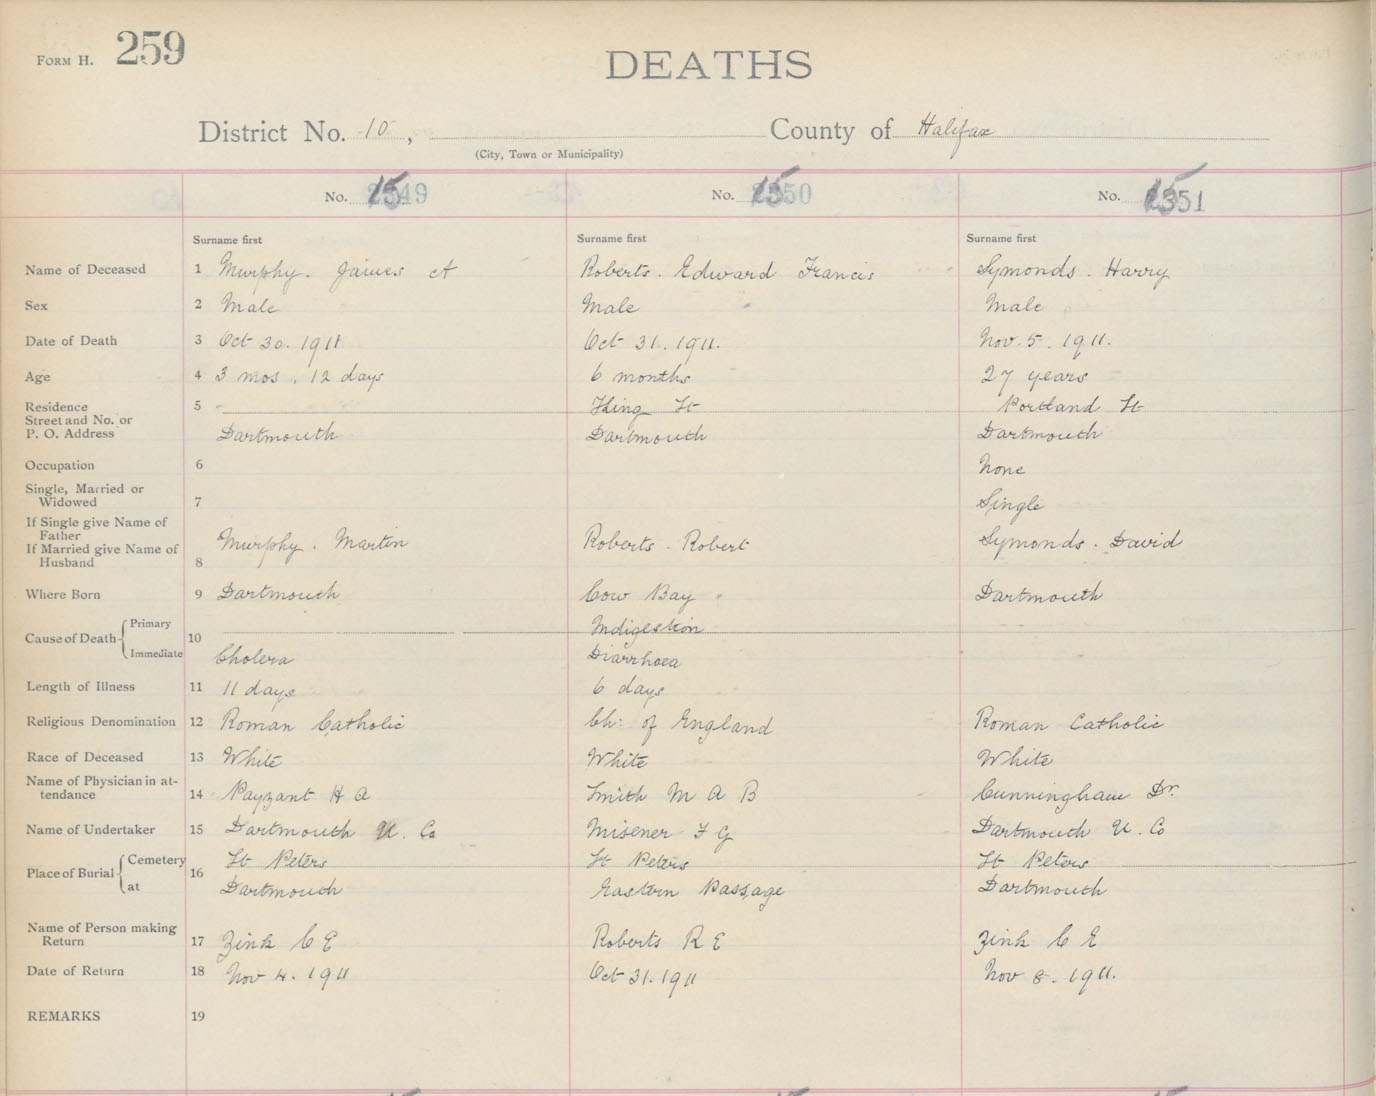 FORM H. 259
DEATHS
District No. 10, County of Halifax
(City, Town or Municipality)
No. 1549 No. 1550 No. 1551
Surname first Surname first Surname first
Name of Deceased 1 Murphy. James A Roberts. Edward Francis Symonds. Harry
Sex 2 Male Male Male
Date of Death 3 Oct 30. 1911 Oct 31. 1911. Nov. 5. 1911.
Age 4 3 mos. 12 days 6 months 27 years
Residence 5 King St Portland St
Street and No. or
P. O. Address Dartmouth Dartmouth Dartmouth
Occupation 6 None
Single, Married or
Widowed 7 Single
If Single give Name of
Father
If Married give Name of Murphy. Martin Roberts. Robert Symonds. David
Husband 8
Where Born 9 Dartmouth Cow Bay Dartmouth
Cause of Death Primary 10 Indigestion
Immediate Cholera Diarrhoea
Length of Illness 11 11 days 6 days
Religious Denomination 12 Roman Catholic Ch: of England Roman Catholic
Race of Deceased 13 White White White
Name of Physician in at-
tendance 14 Payzant H A Smith M A B Cunningham Dr.
Name of Undertaker 15 Dartmouth U. Co Misener F G Dartmouth U. Co
Place of Burial Cemetery 16 St Peters St Peters St Peters
at Dartmouth Eastern Passage Dartmouth
Name of Person making
Return 17 Zink C E Roberts R E Zink C E
Date of Return 18 Nov 4. 1911 Oct 31. 1911 Nov 8. 1911.
REMARKS 19